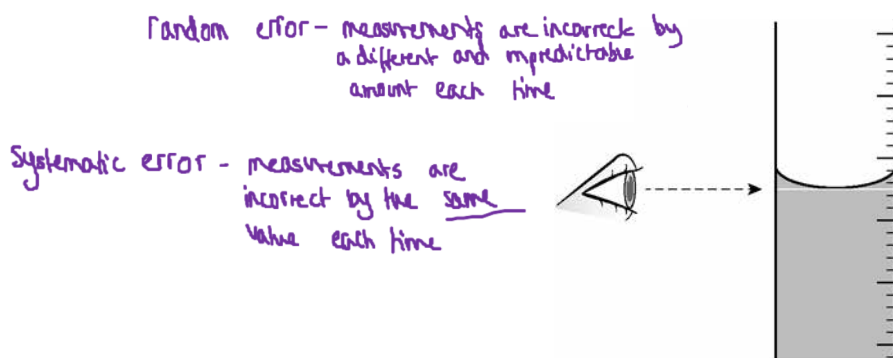 random error - measurements are incorrect by
a different and unpredictable
amount each time
Systematic error - measurements are
incorrect by the same
value each time